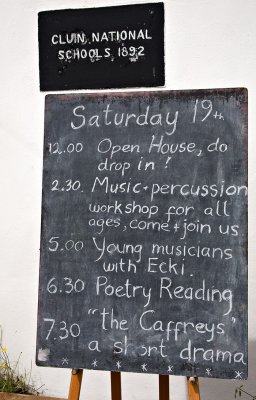 CLUIN NATIONAL
SCHOOLS 1892
Saturday 19th
12.00 Open House, do
drop in!
2.30. Music + percussion
workshop for all
ages, come + join us.
5.00 Young musicians
with Ecki.
6.30 Poetry Reading
7.30 "the Caffreys"
a short drama